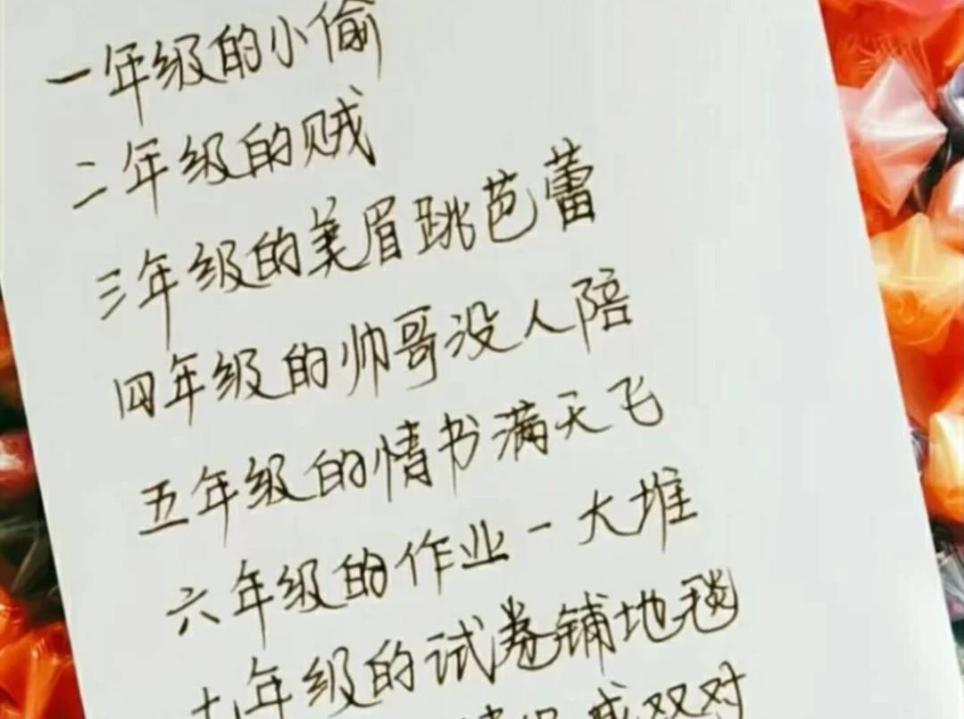 一年级的小偷
二年级的贼
三年级的美眉跳芭蕾
四年级的帅哥没人陪
五年级的情书满天飞
六年级的作业一大堆
七年级的试卷铺地毯
成双对